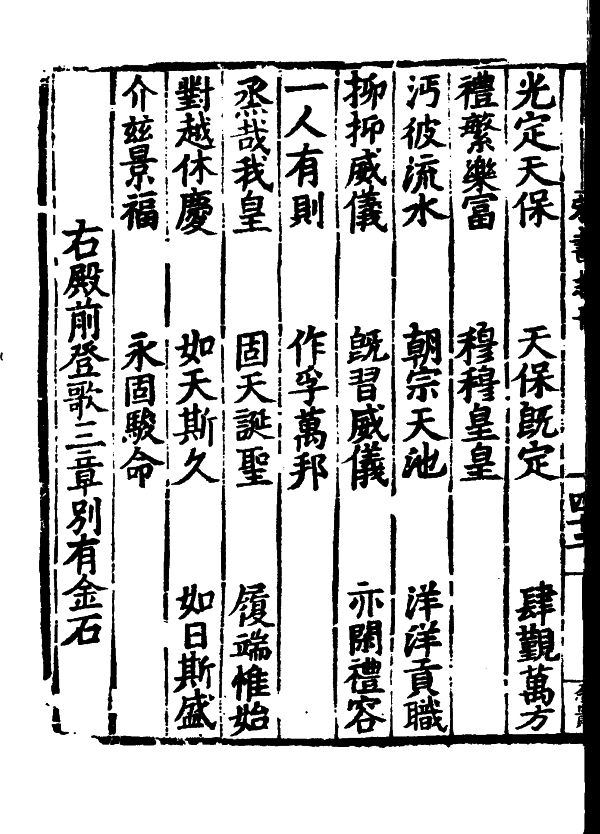 光定天保 天保既定 肆覲萬方
禮繁樂富 穆穆皇皇
沔彼流水 朝宗天池 洋洋貢職
抑抑威儀 既習威儀 亦閑禮容
一人有則 作孚萬邦
烝哉我皇 固天誕聖 履端惟始
對越休慶 如天斯久 如日斯盛
介兹景福 永固駿命
右殿前登歌三章別有金石